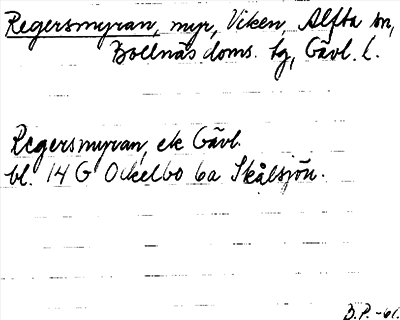 Regersmyran, myr, Viken, Alfta sn,
Bollnäs doms. tg, Gävl. l.
Regersmyran, ek Gävl.
bl. 14 G Ockelbo 6a Skålsjön.
B.P. -61.